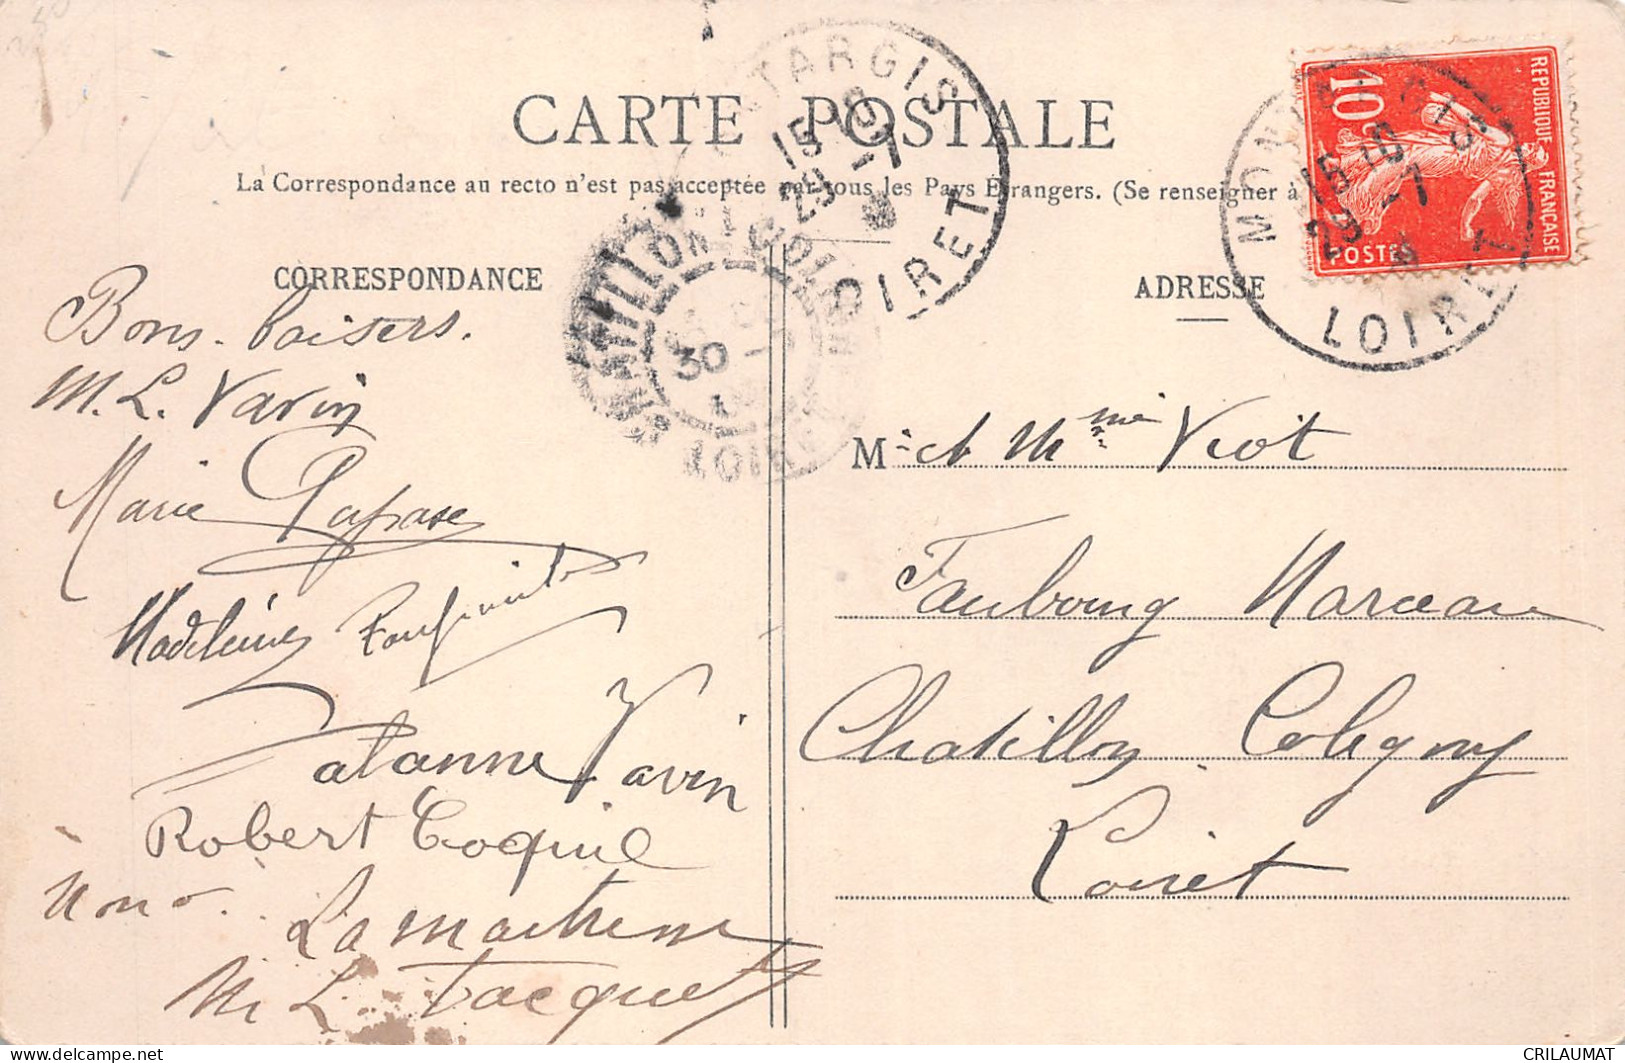 CARTE POSTALE
La Correspondance au recto n'est pas acceptée par tous les Pays Étrangers. (Se renseigner à
CORRESPONDANCE
ADRESSE
MONTARGIS
15 15
29 -7
LOIRET
MONTARGIS
15
29 -7
LOIRET
CHATILLON COLIGNY
30
LOIRET
REPUBLIQUE FRANÇAISE
10c
POSTES
Bons baisers.
M. L. Varin
Marie
Madeleine
Varin
Robert Coquil
Nono
La
M L Jacquet
M et Mme Viot
Faubourg Marceau
Chatillon Coligny
Loiret
delcampe.net
CRILAUMAT